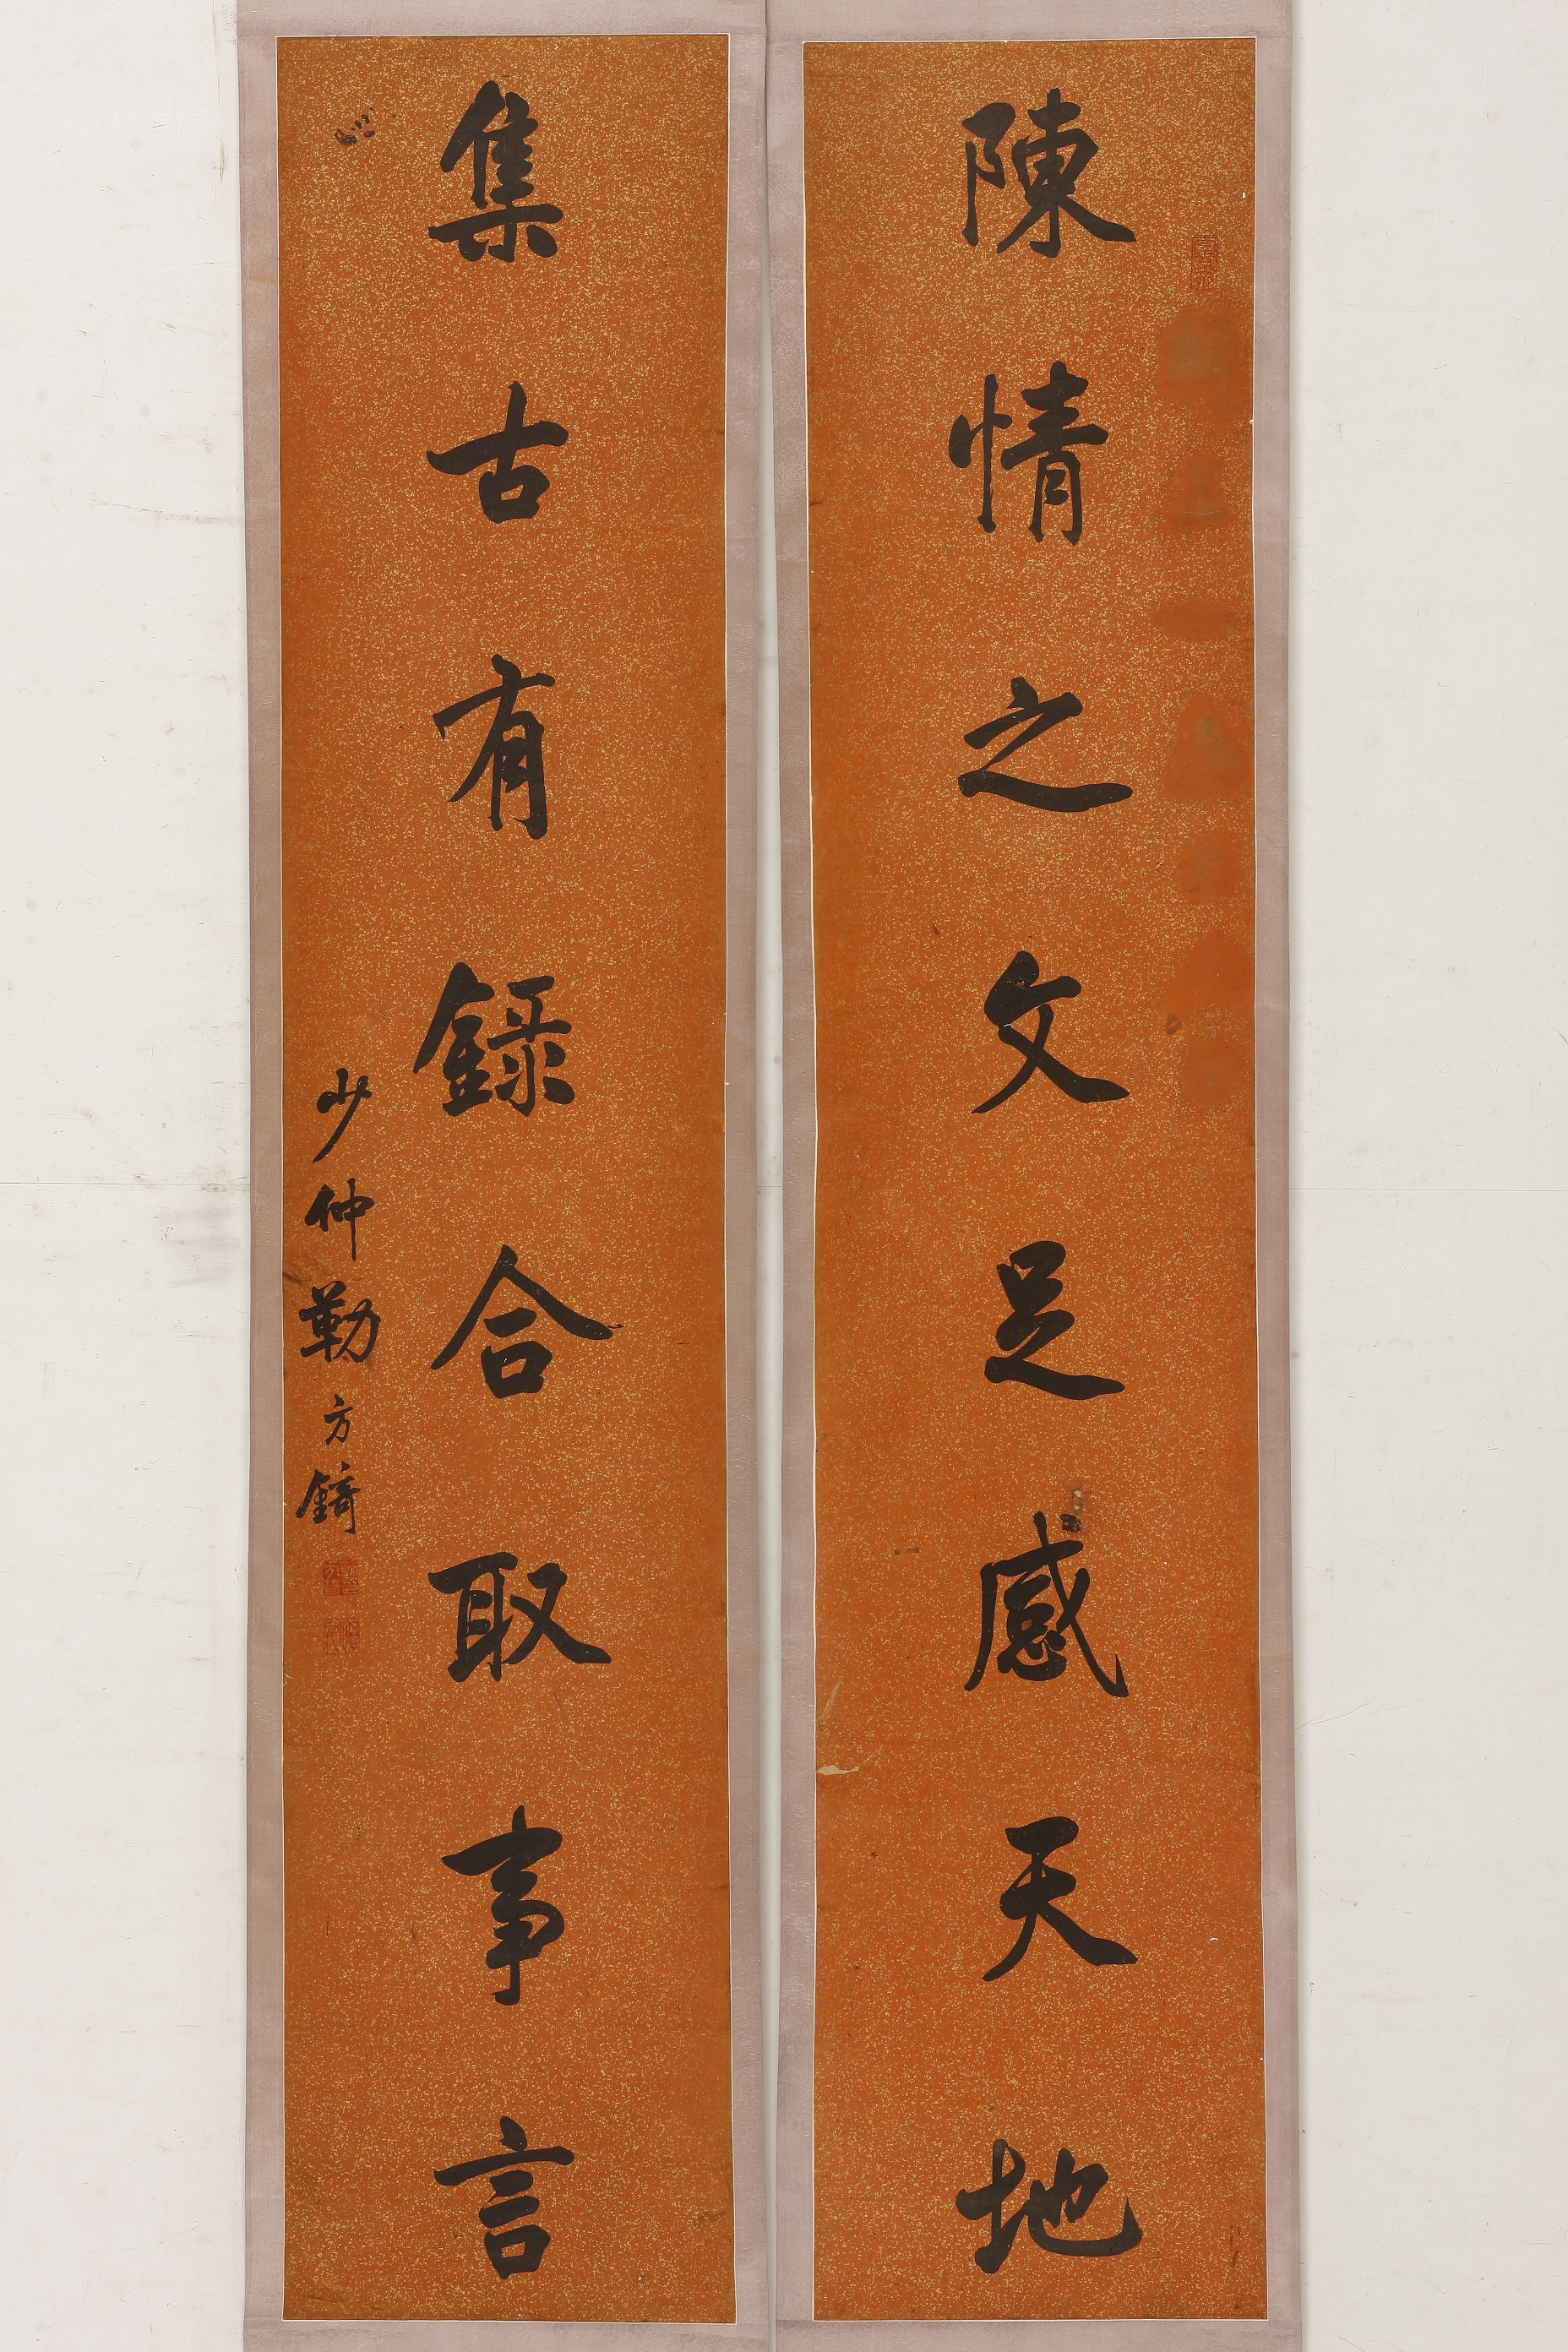 陳情之文足感天地
集古有録合取事言
少仲勒方錡